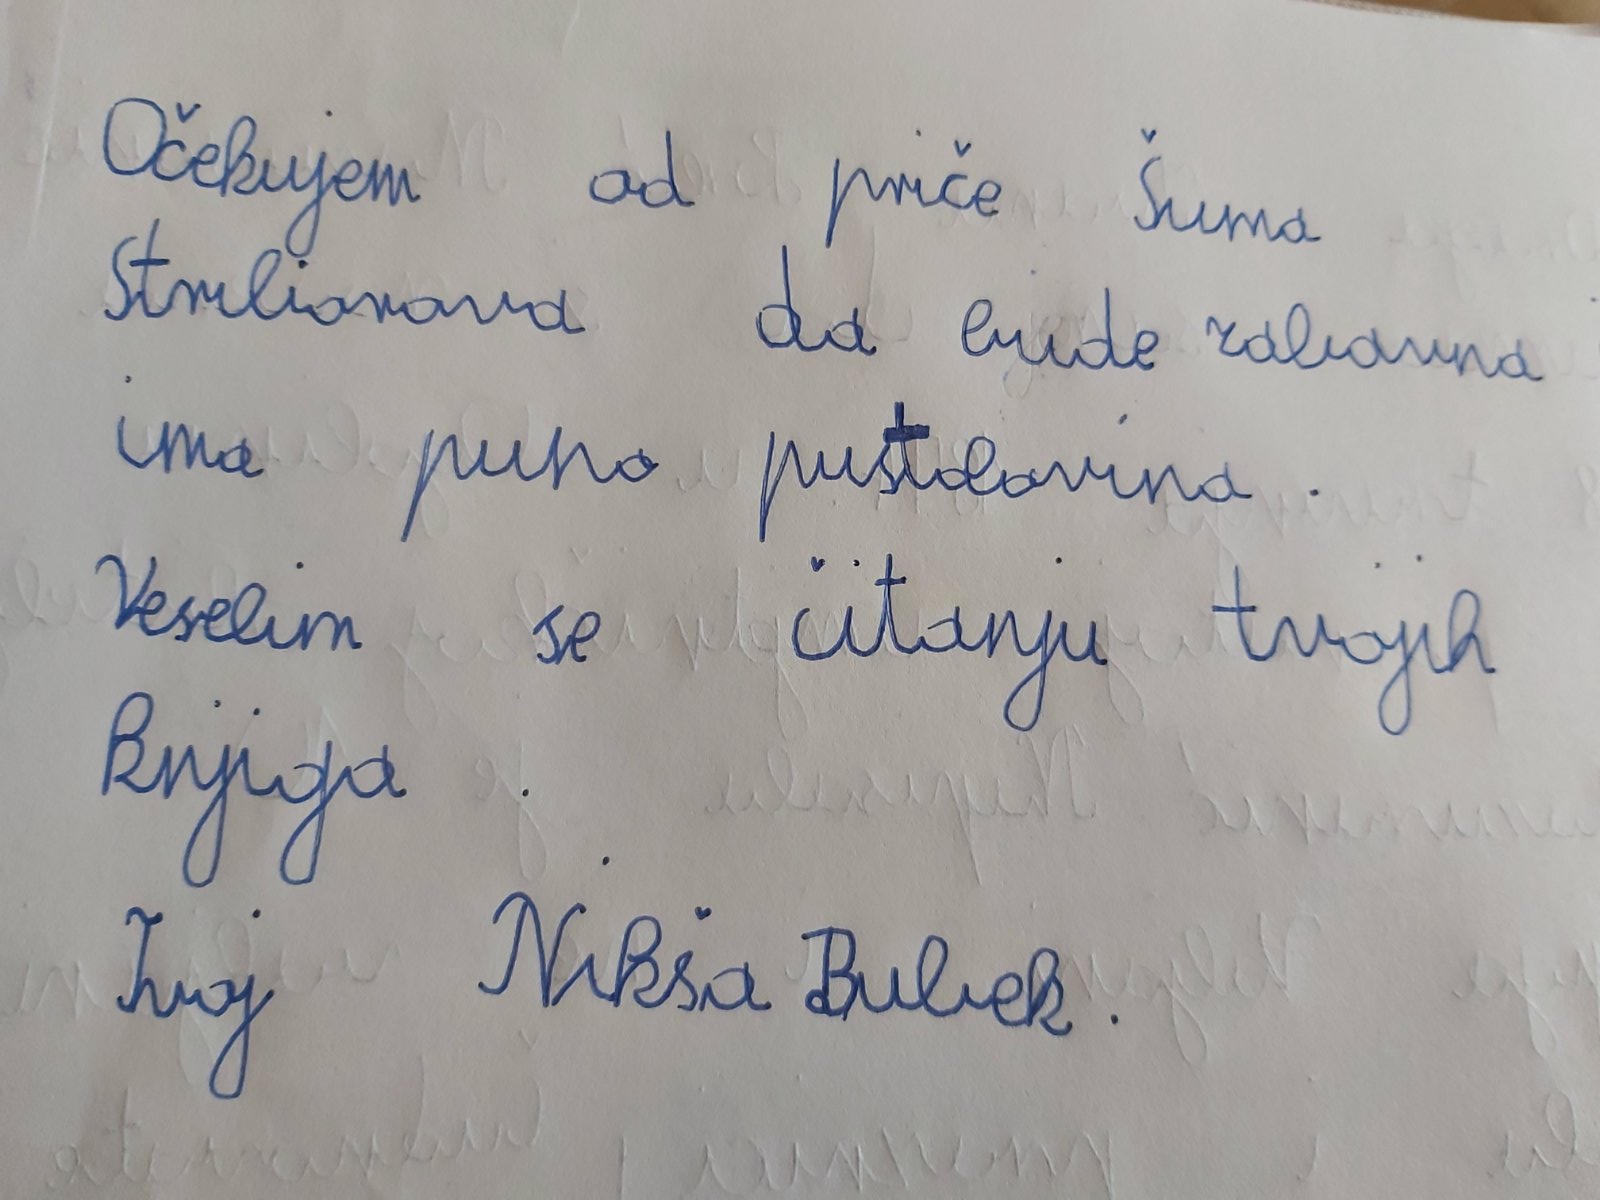 Očekujem od priče Šuma
Striborova da bude zabavna i
ima puno pustolovina.
Veselim se čitanju tvojih
knjiga.
Tvoj Nikša Bubek.